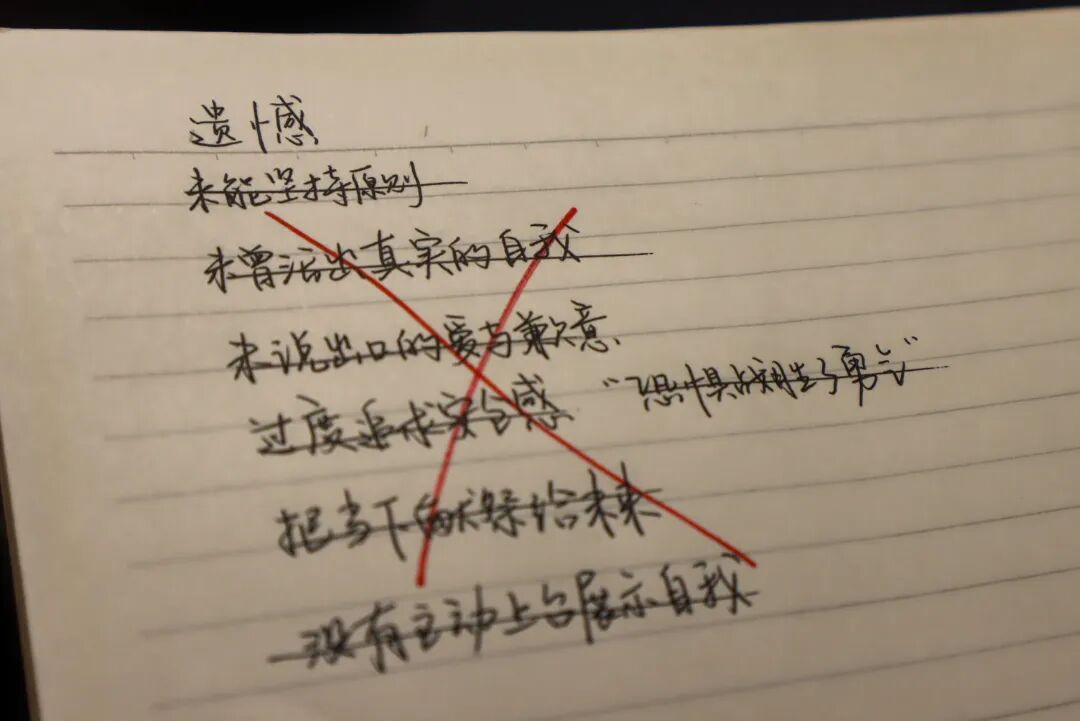 遗憾
未能坚持原则
未曾活出真实的自我
未说出口的爱与歉意
过度追求安全感 "恐惧战胜了勇气"
把当下的献祭给未来
没有主动上台展示自我